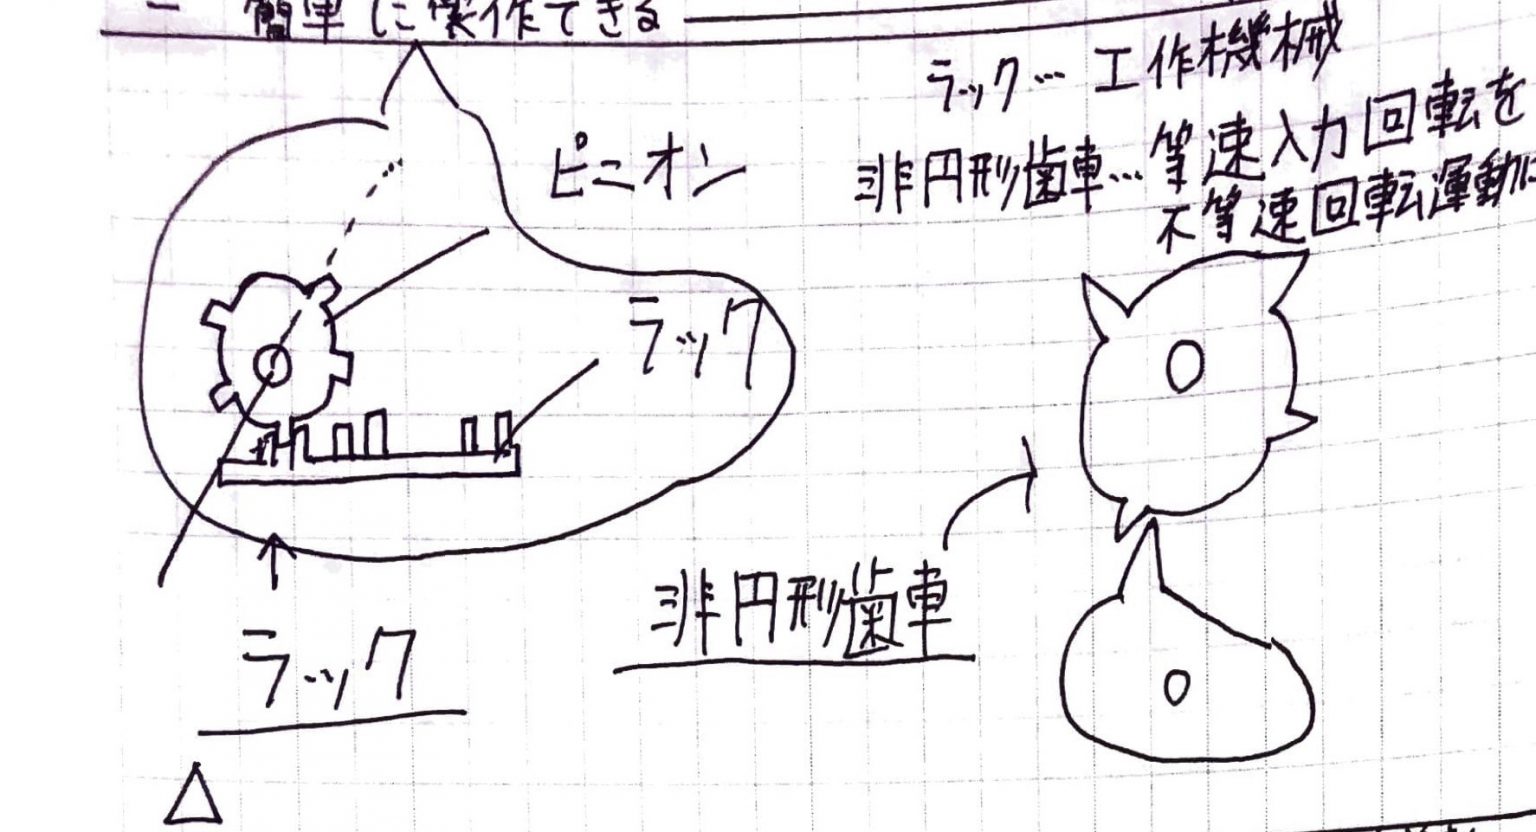 簡単に製作できる
ラック…工作機械
非円形歯車…等速入力回転を
不等速回転運動に
ピニオン
ラック
非円形歯車
ラック